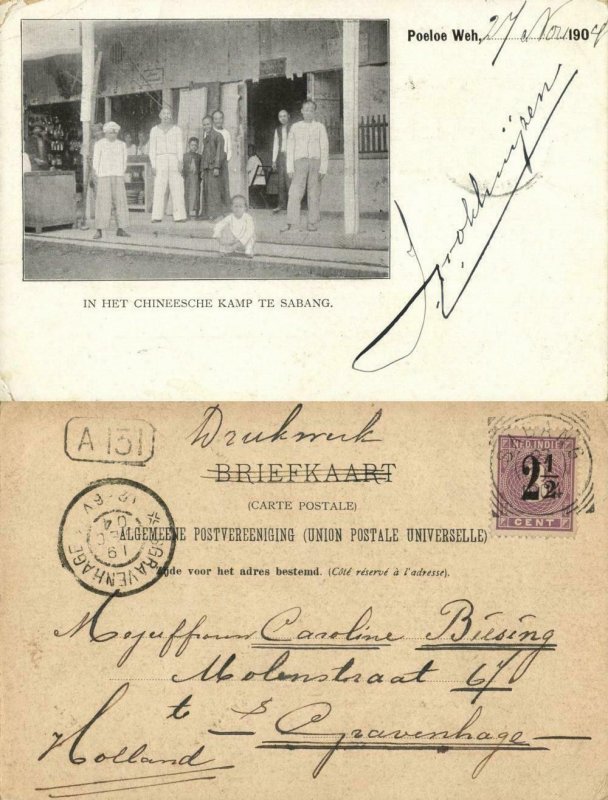 Poeloe Weh, 27 Nov. 1904
IN HET CHINEESCHE KAMP TE SABANG.
A 151
Drukwerk
BRIEFKAART
(CARTE POSTALE)
ALGEMEENE POSTVEREENIGING (UNION POSTALE UNIVERSELLE)
Zijde voor het adres bestemd. (Côté réservé à l'adresse).
NED.INDIË
2 1/2
CENT
SABANG
GRAVENHAGE
19
04
Mejuffrouw Caroline Biesing
Molenstraat 67
te s Gravenhage
Holland